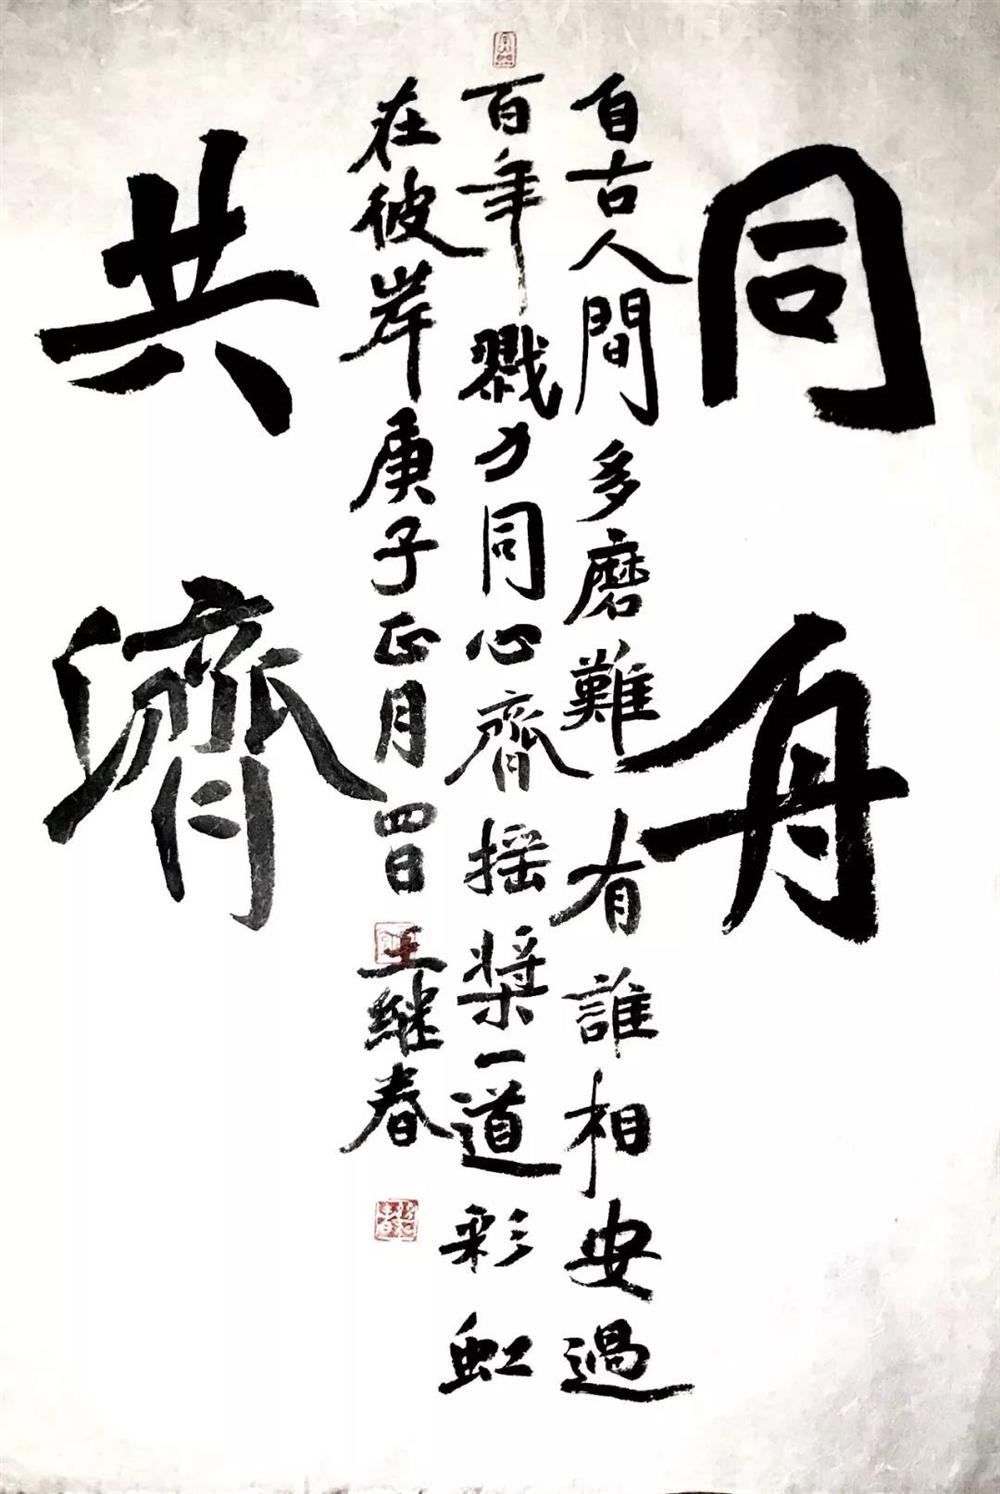 同舟
自古人間多磨難有誰相安過
百年戮力同心齊摇槳一道彩虹
在彼岸庚子正月四日王继春
共濟